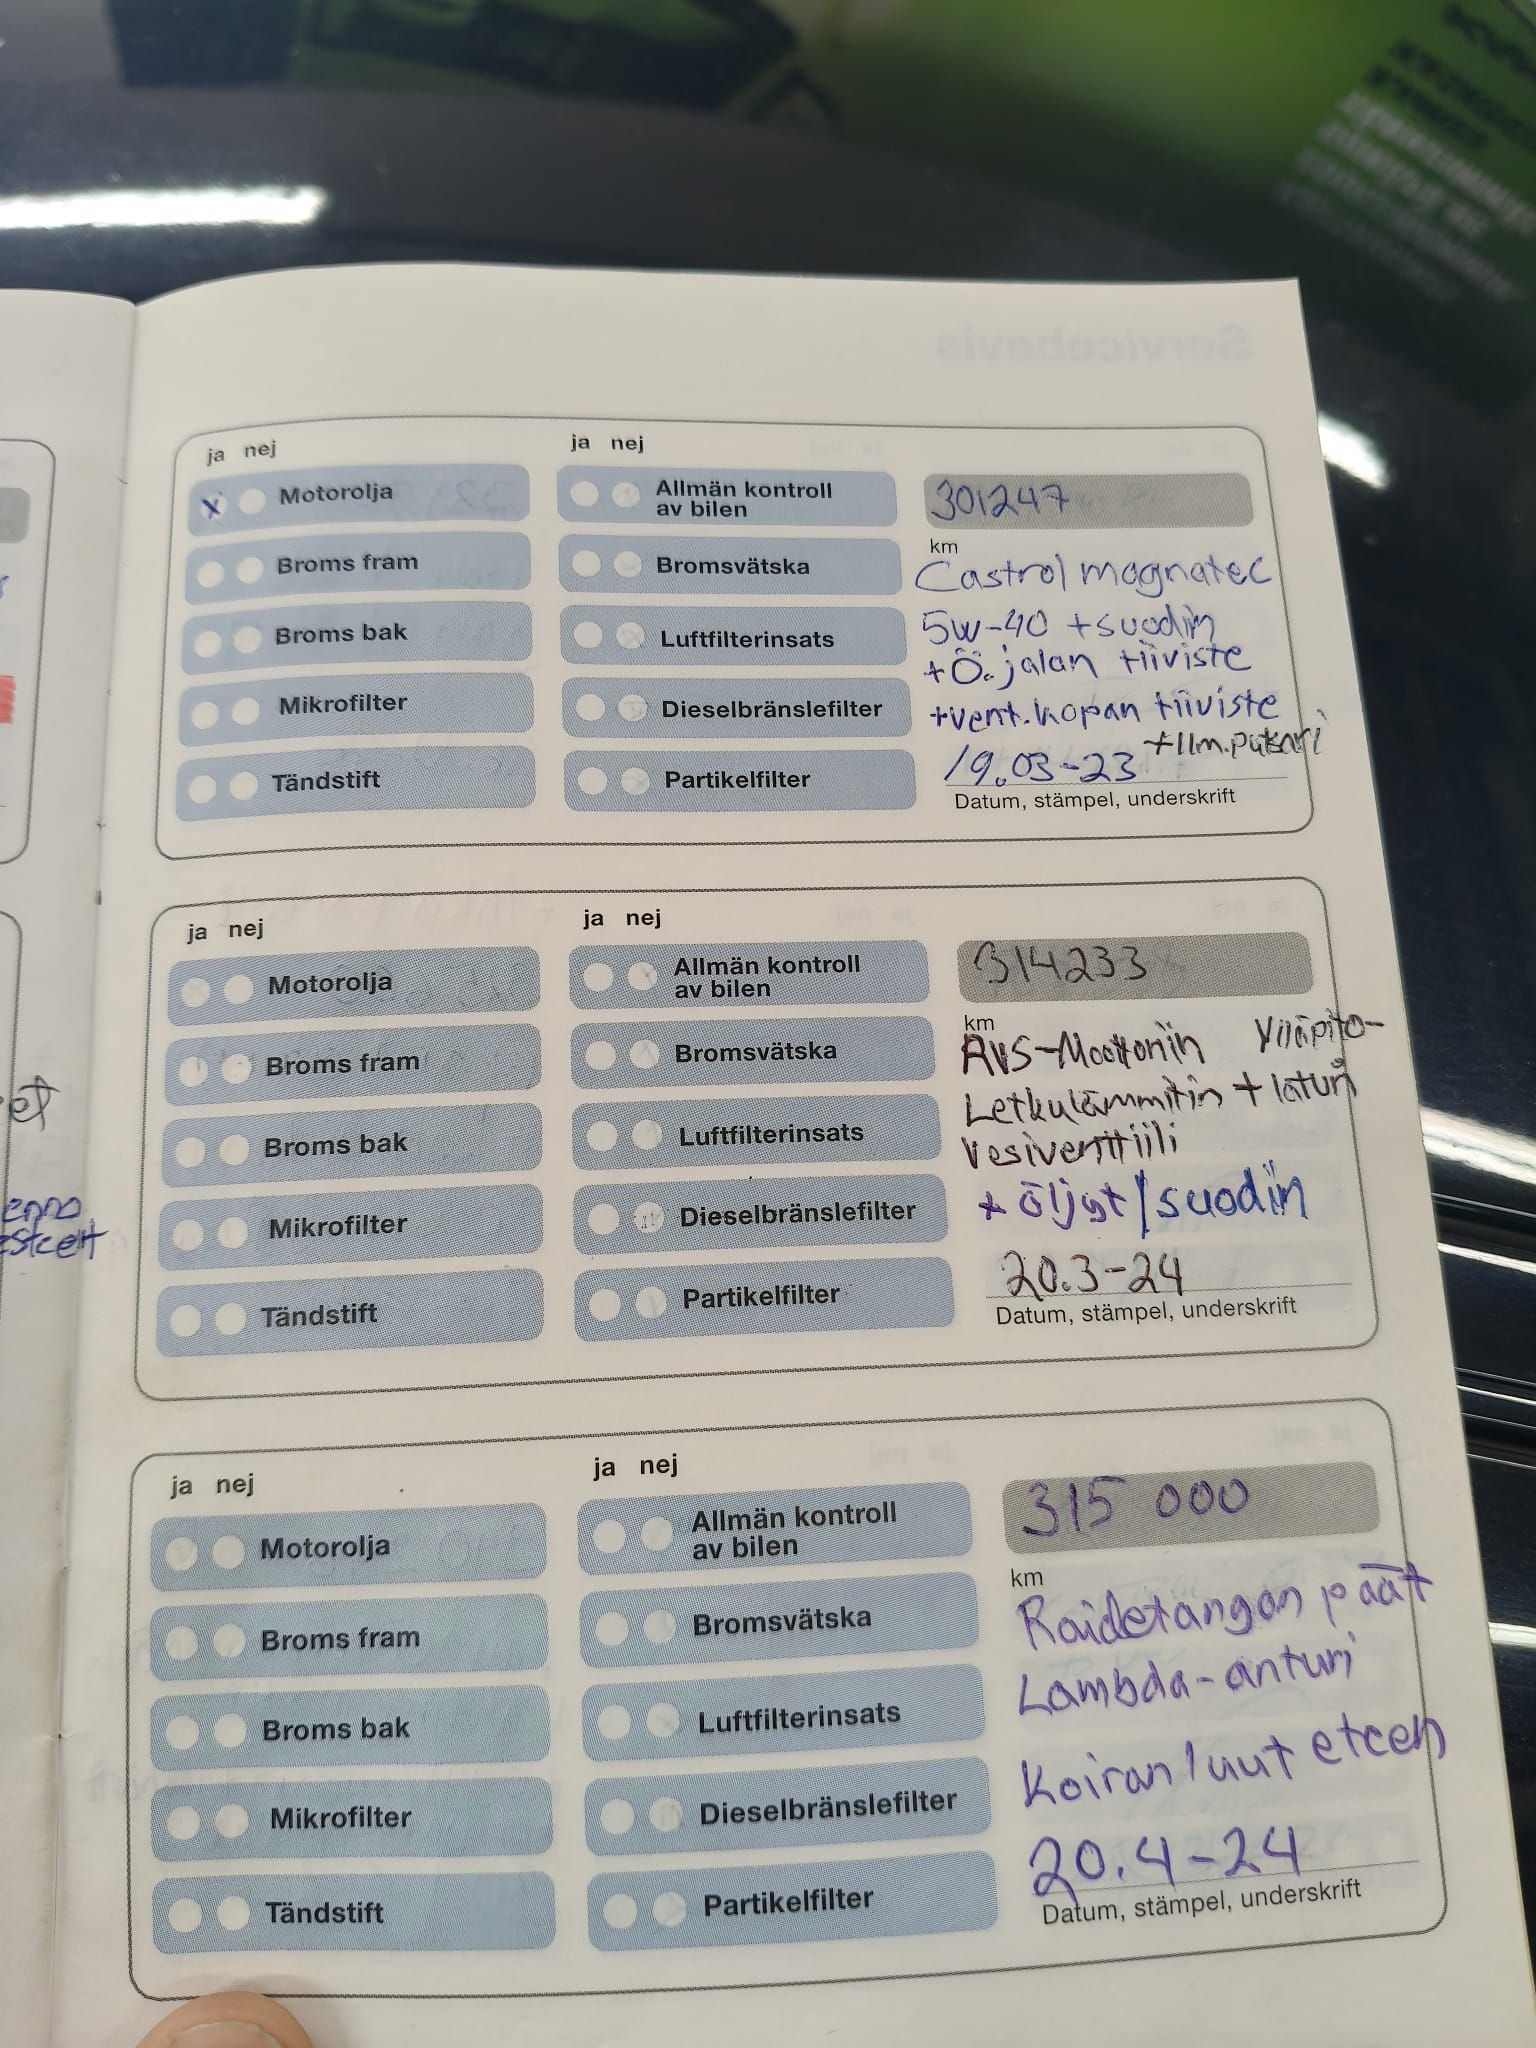 Servicebevis
ja nej
Motorolja
Broms fram
Broms bak
Mikrofilter
Tändstift
ja nej
Allmän kontroll
av bilen
Bromsvätska
Luftfilterinsats
Dieselbränslefilter
Partikelfilter
301247
km
Castrol magnatec
5w-40 +suodin
+Ö.jalan tiiviste
+vent.kopan tiiviste
+Ilm.putsari
19.03-23
Datum, stämpel, underskrift
ja nej
Motorolja
Broms fram
Broms bak
Mikrofilter
Tändstift
ja nej
Allmän kontroll
av bilen
Bromsvätska
Luftfilterinsats
Dieselbränslefilter
Partikelfilter
314233
km
AVS-Moottorin Ylläpito-
Letkulämmitin + laturi
Vesiventtiili
+ öljyt/suodin
20.3-24
Datum, stämpel, underskrift
ja nej
Motorolja
Broms fram
Broms bak
Mikrofilter
Tändstift
ja nej
Allmän kontroll
av bilen
Bromsvätska
Luftfilterinsats
Dieselbränslefilter
Partikelfilter
315 000
km
Raidetangon päät
Lambda-anturi
Koiranluut eteen
20.4-24
Datum, stämpel, underskrift